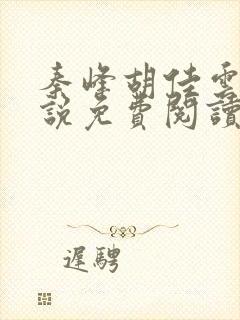 秦峰胡佳雲
說免費閱讀
遲騁